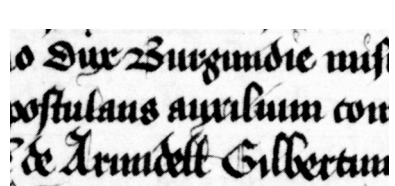 o Dux Burgundie mis
postulans auxilium con
de Arundell Gilbertum